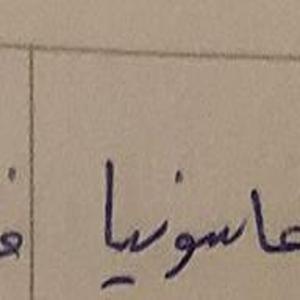 ماسونيا